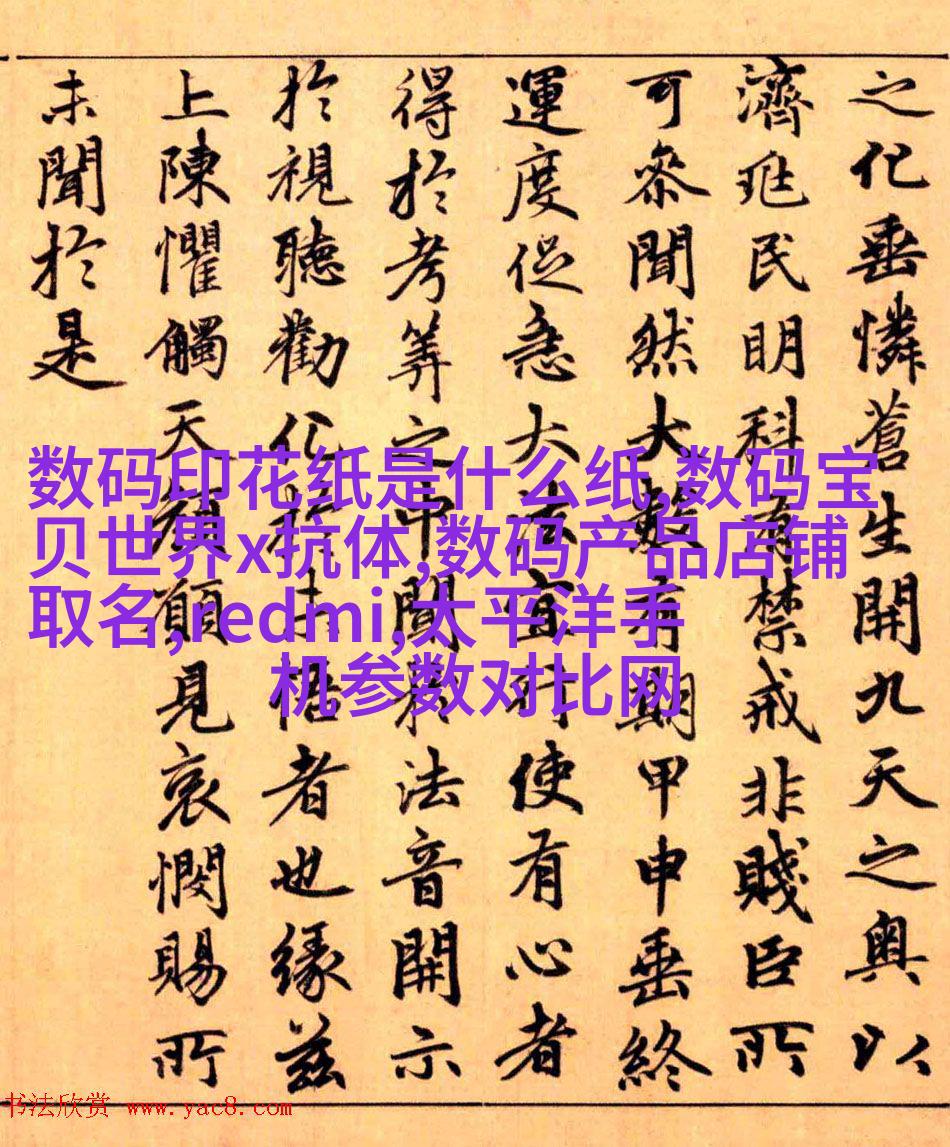 之化垂憐蒼生開九天之奧以
濟兆民明科有禁戒非賤臣所
可參聞然大數有期甲申垂終
運度促急大法宜行使有心者
得於考筭之中聞法音開示
於視聽勸化於未悟者也緣茲
上陳懼觸天顏願見哀憫賜所
未聞於是
数码印花纸是什么纸,数码宝
贝世界x抗体,数码产品店铺
取名,redmi,太平洋手
机参数对比网
书法欣赏 www.yac8.com